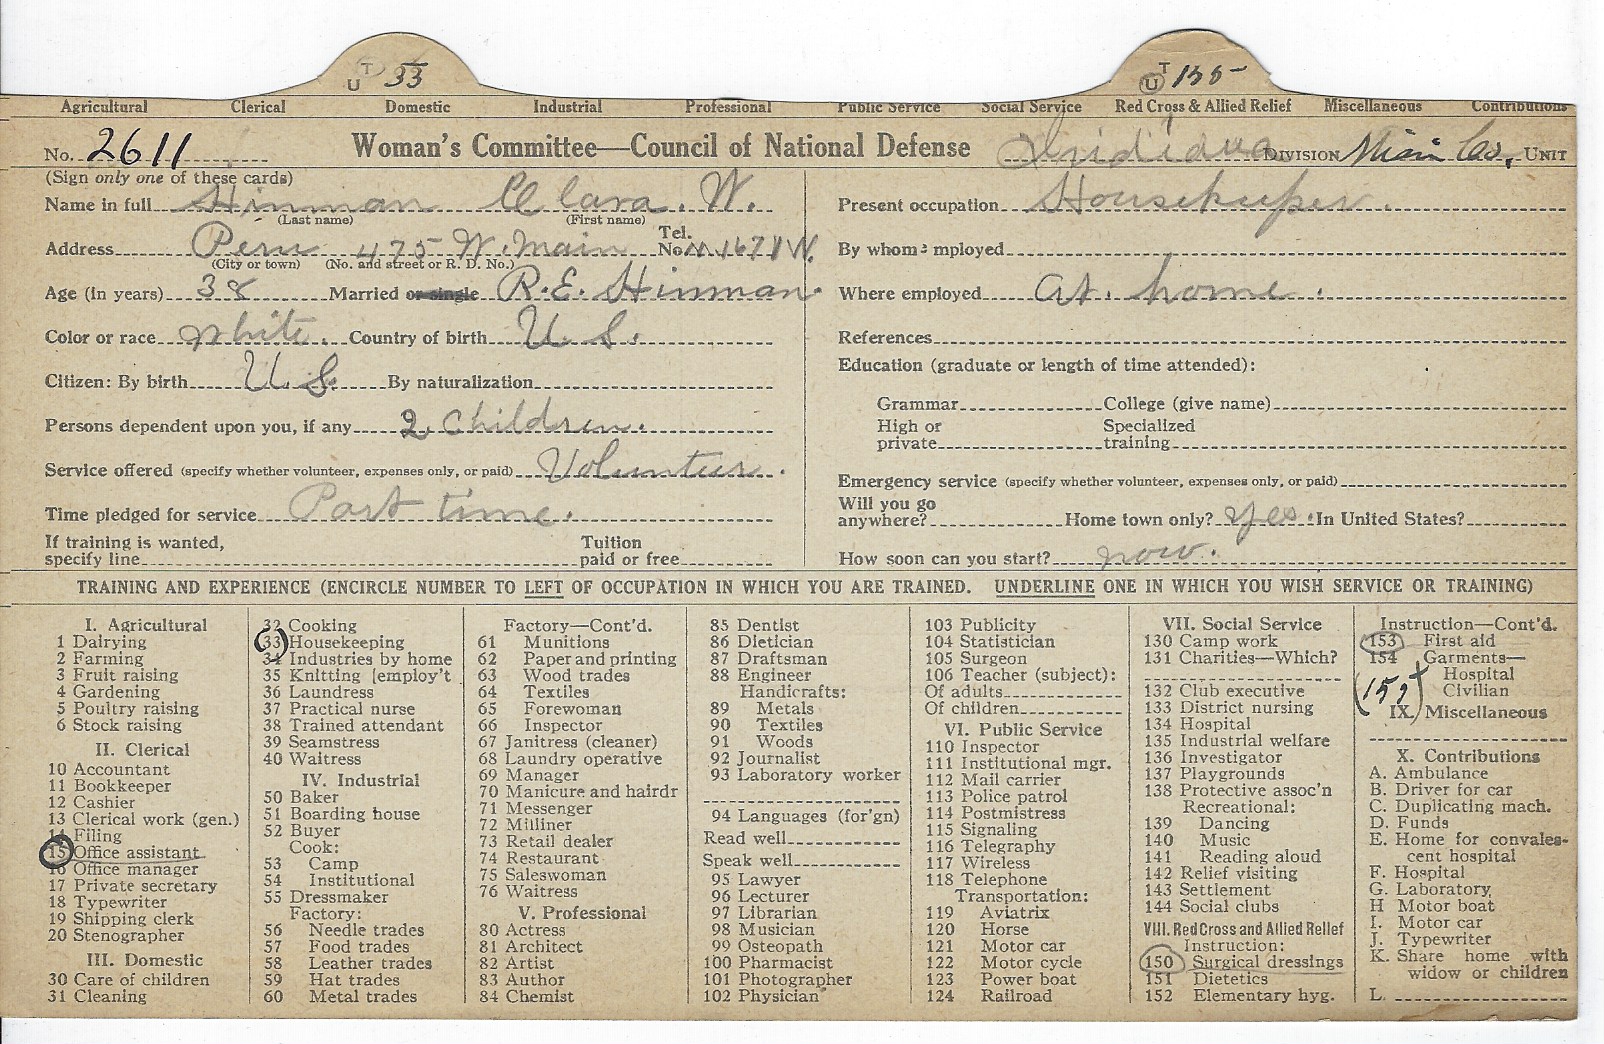 T U 33
T U 155
Agricultural Clerical Domestic Industrial Professional Public Service Social Service Red Cross & Allied Relief Miscellaneous Contributions
No. 2611 Woman's Committee—Council of National Defense DIVISION Miami Co. UNIT
(Sign only one of these cards)
Name in full Hinman Clara. W.
(Last name) (First name)
Address Peru 475 W. Main Tel. No. 1671W.
(City or town) (No. and street or R. D. No.)
Age (in years) 38 Married or single R. E. Hinman.
Color or race white. Country of birth U. S.
Citizen: By birth U. S. By naturalization
Persons dependent upon you, if any 2 Children.
Service offered (specify whether volunteer, expenses only, or paid) Volunteer.
Time pledged for service Part time.
If training is wanted, specify line Tuition paid or free
Present occupation Housekeeper.
By whom employed
Where employed at. home.
References
Education (graduate or length of time attended):
Grammar College (give name)
High or private Specialized training
Emergency service (specify whether volunteer, expenses only, or paid)
Will you go anywhere? Home town only? yes. In United States?
How soon can you start? now.
TRAINING AND EXPERIENCE (ENCIRCLE NUMBER TO LEFT OF OCCUPATION IN WHICH YOU ARE TRAINED. UNDERLINE ONE IN WHICH YOU WISH SERVICE OR TRAINING)
I. Agricultural
1 Dairying
2 Farming
3 Fruit raising
4 Gardening
5 Poultry raising
6 Stock raising
II. Clerical
10 Accountant
11 Bookkeeper
12 Cashier
13 Clerical work (gen.)
14 Filing
15 Office assistant
16 Office manager
17 Private secretary
18 Typewriter
19 Shipping clerk
20 Stenographer
III. Domestic
30 Care of children
31 Cleaning
32 Cooking
33 Housekeeping
34 Industries by home
35 Knitting [employ't
36 Laundress
37 Practical nurse
38 Trained attendant
39 Seamstress
40 Waitress
IV. Industrial
50 Baker
51 Boarding house
52 Buyer
Cook:
53 Camp
54 Institutional
55 Dressmaker
Factory:
56 Needle trades
57 Food trades
58 Leather trades
59 Hat trades
60 Metal trades
Factory—Cont'd.
61 Munitions
62 Paper and printing
63 Wood trades
64 Textiles
65 Forewoman
66 Inspector
67 Janitress (cleaner)
68 Laundry operative
69 Manager
70 Manicure and hairdr
71 Messenger
72 Milliner
73 Retail dealer
74 Restaurant
75 Saleswoman
76 Waitress
V. Professional
80 Actress
81 Architect
82 Artist
83 Author
84 Chemist
85 Dentist
86 Dietician
87 Draftsman
88 Engineer
Handicrafts:
89 Metals
90 Textiles
91 Woods
92 Journalist
93 Laboratory worker
94 Languages (for'gn)
Read well
Speak well
95 Lawyer
96 Lecturer
97 Librarian
98 Musician
99 Osteopath
100 Pharmacist
101 Photographer
102 Physician
103 Publicity
104 Statistician
105 Surgeon
106 Teacher (subject):
Of adults
Of children
VI. Public Service
110 Inspector
111 Institutional mgr.
112 Mail carrier
113 Police patrol
114 Postmistress
115 Signaling
116 Telegraphy
117 Wireless
118 Telephone
Transportation:
119 Aviatrix
120 Horse
121 Motor car
122 Motor cycle
123 Power boat
124 Railroad
VII. Social Service
130 Camp work
131 Charities—Which?
132 Club executive
133 District nursing
134 Hospital
135 Industrial welfare
136 Investigator
137 Playgrounds
138 Protective assoc'n
Recreational:
139 Dancing
140 Music
141 Reading aloud
142 Relief visiting
143 Settlement
144 Social clubs
VIII. Red Cross and Allied Relief
Instruction:
150 Surgical dressings
151 Dietetics
152 Elementary hyg.
Instruction—Cont'd.
153 First aid
154 Garments—
Hospital
Civilian
IX. Miscellaneous
X. Contributions
A. Ambulance
B. Driver for car
C. Duplicating mach.
D. Funds
E. Home for convales-
cent hospital
F. Hospital
G. Laboratory
H Motor boat
I. Motor car
J. Typewriter
K. Share home with
widow or children
L.